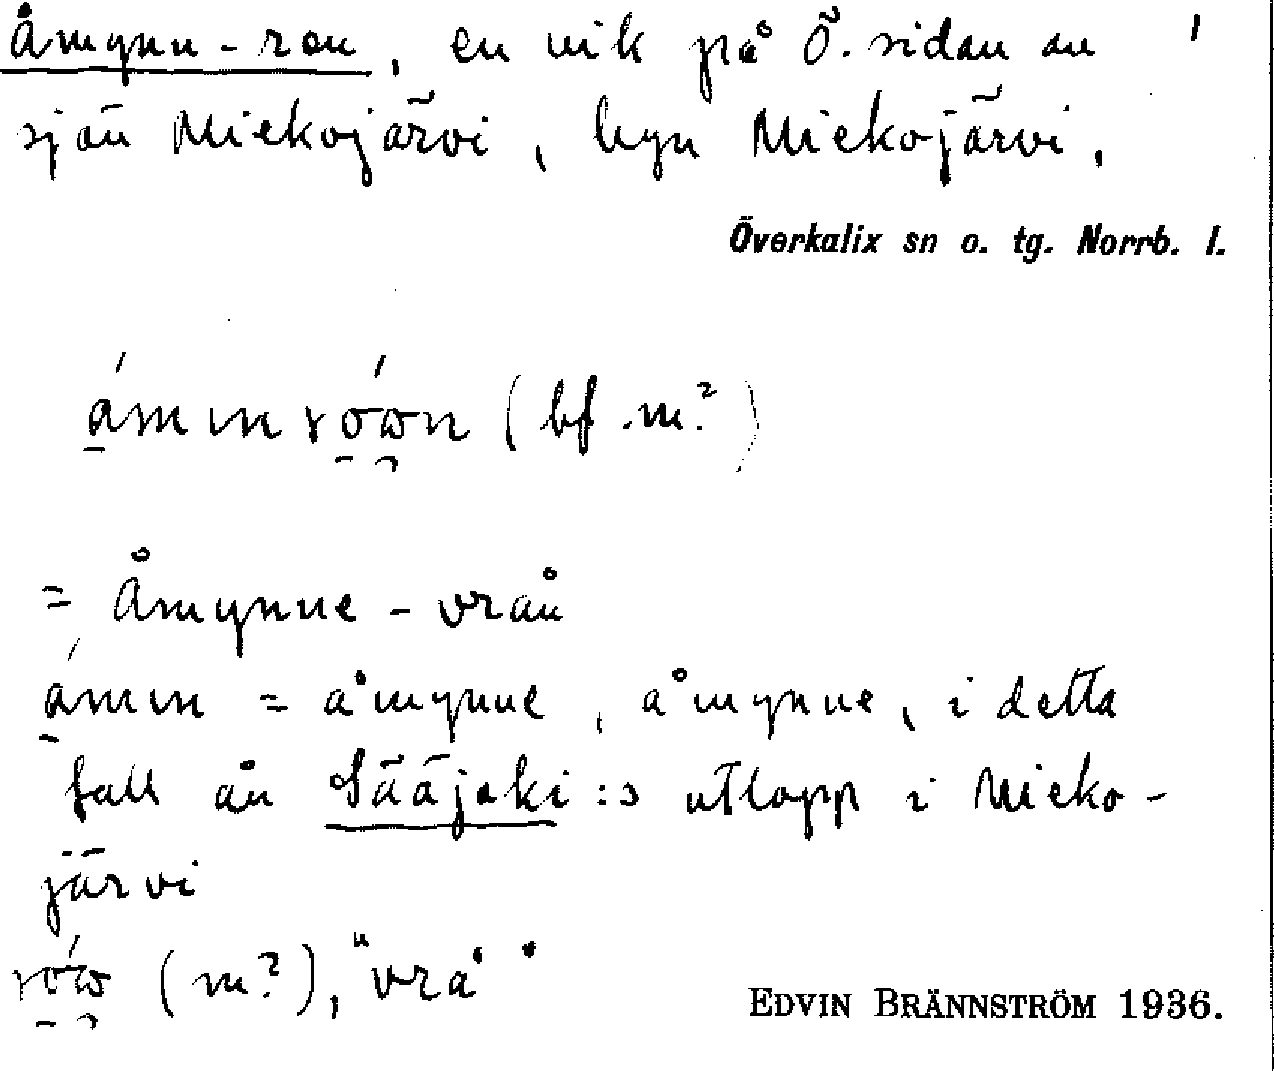 Åmynn-ron, en vik på Ö. sidan av
sjön Miekojärvi, byn Miekojärvi.
Överkalix sn o. tg. Norrb. l.
(bf. m.?)
= Åmynne-vrån
= åmynne, åmynne, i detta
fall ån Sääjoki:s utlopp i Mieko-
järvi
(m?), "vrå"
EDVIN BRÄNNSTRÖM 1936.